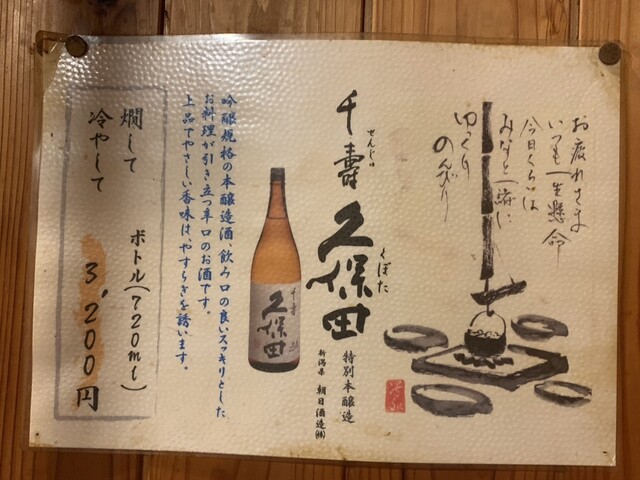 お疲れさま
いつも一生懸命
今日くらいは
みなと一緒に
ゆっくり
のんびり
千壽
せんじゅ
久保田
くぼた
特別本醸造
新潟県 朝日酒造㈱
千寿
久保田
吟醸規格の本醸造酒、飲み口の良いスッキリとした
お料理が引き立つ辛口のお酒です。
上品でやさしい香味は、やすらぎを誘います。
燗して
冷やして
ボトル(720ml)
3,200円